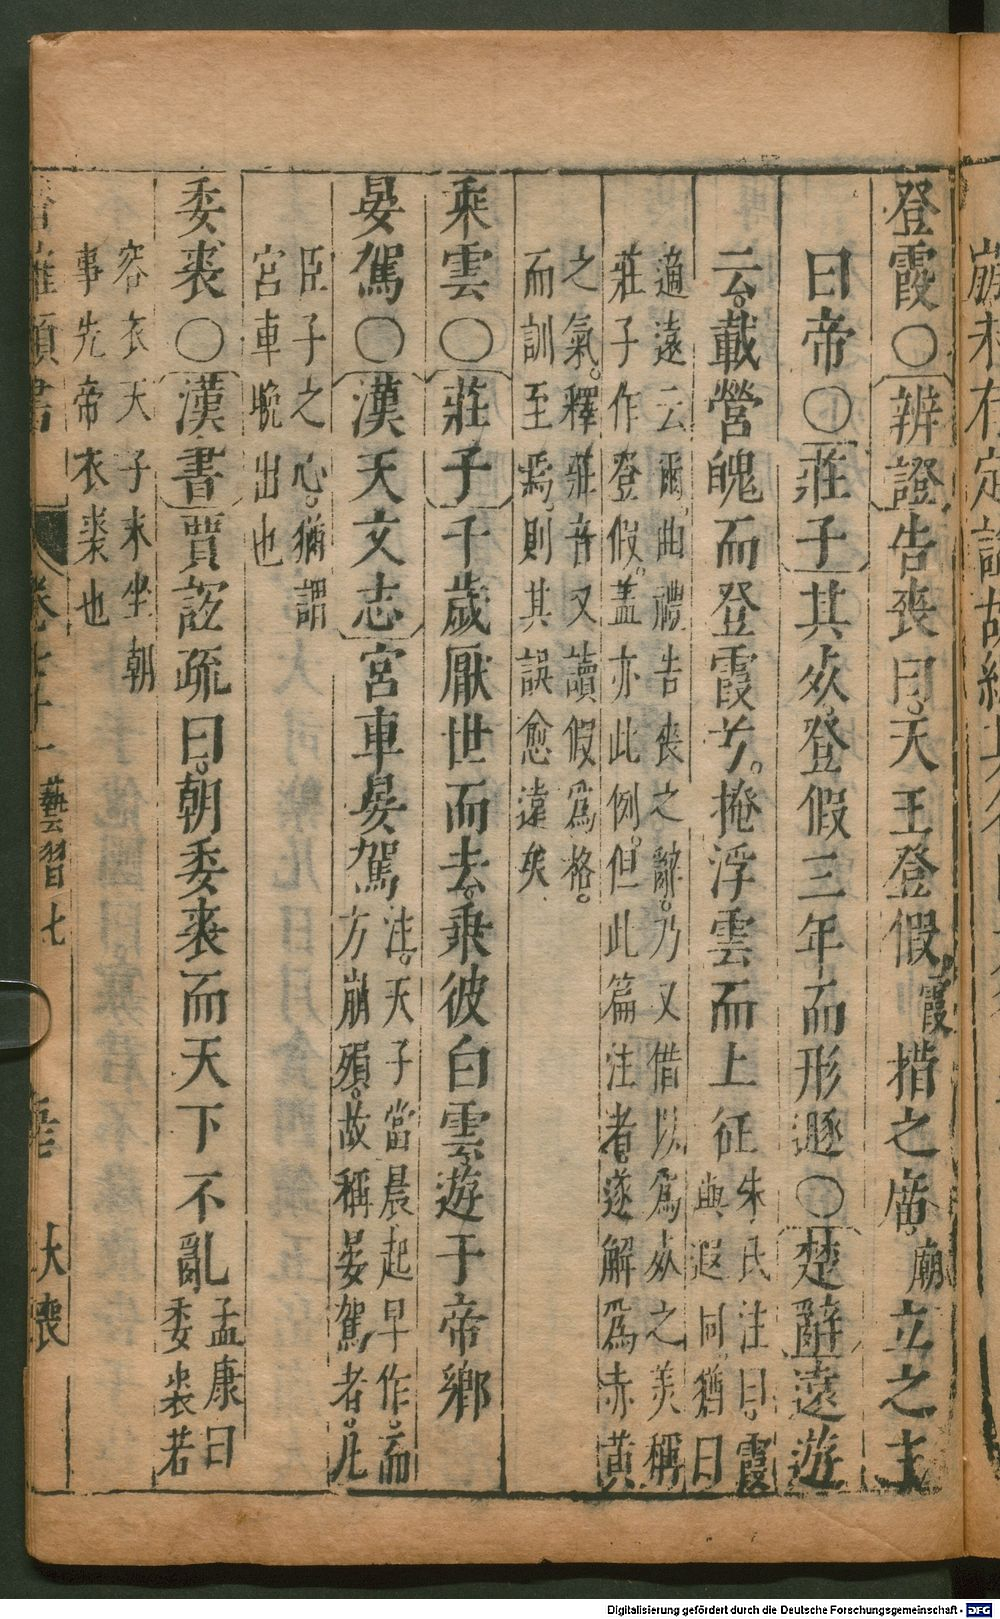 登霞○辨證告喪曰天王登假霞措之廣廟立之主
曰帝○莊子其死登假三年而形遯○楚辭遠遊
云載營魄而登霞兮掩浮雲而上征朱氏注曰霞
與遐同猶曰
適遠云爾曲禮告喪之辭乃又借以爲死之美稱
莊子作登假蓋亦此例但此篇注者遂解爲赤黃
之氣釋莊音又讀假爲格
而訓至焉則其誤愈遠矣
乘雲○莊子千歲厭世而去乘彼白雲遊于帝鄉
晏駕○漢天文志宮車晏駕注天子當晨起早作而
方崩殞故稱晏駕者凡
臣子之心猶謂
宮車晚出也
委裘○漢書賈誼疏曰朝委裘而天下不亂孟康曰
委裘若
容衣天子未坐朝
事先帝衣裘也
卷七十一 藝習七 大喪
Digitalisierung gefördert durch die Deutsche Forschungsgemeinschaft - DFG